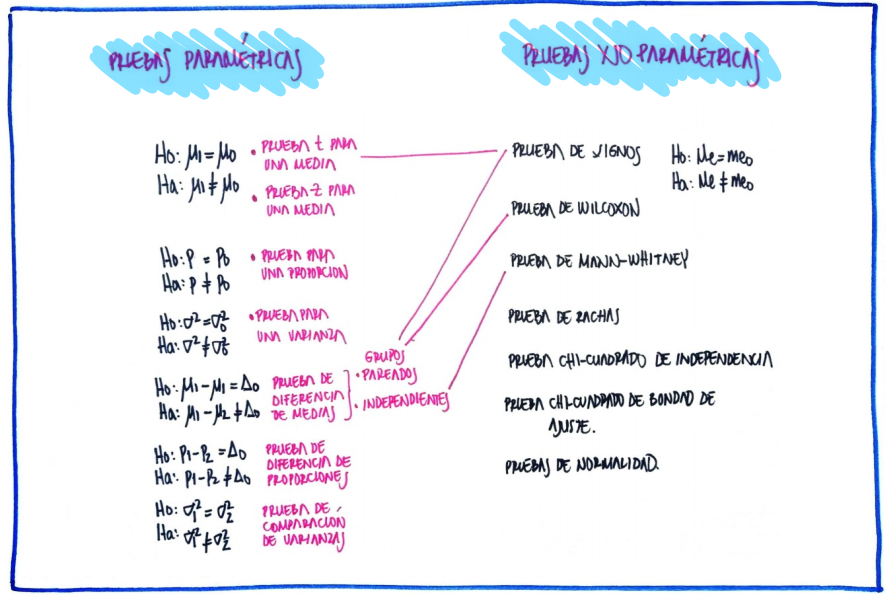 PRUEBAS PARAMÉTRICAS
Ho: μ1 = μo
Ha: μ1 ≠ μo
• PRUEBA t PARA
UNA MEDIA
• PRUEBA Z PARA
UNA MEDIA
Ho: P = Po
Ha: P ≠ Po
• PRUEBA PARA
UNA PROPORCION
Ho: σ² = σ²o
Ha: σ² ≠ σ²o
• PRUEBA PARA
UNA VARIANZA
Ho: μ1 - μ1 = Δo
Ha: μ1 - μ2 ≠ Δo
PRUEBA DE
DIFERENCIA
DE MEDIAS
GRUPOS
• PAREADOS
• INDEPENDIENTES
Ho: P1 - P2 = Δo
Ha: P1 - P2 ≠ Δo
PRUEBA DE
DIFERENCIA DE
PROPORCIONES
Ho: σ²1 = σ²2
Ha: σ²1 ≠ σ²2
PRUEBA DE
COMPARACION
DE VARIANZAS
PRUEBAS NO PARAMÉTRICAS
PRUEBA DE SIGNOS
Ho: Me = meo
Ha: Me ≠ meo
PRUEBA DE WILCOXON
PRUEBA DE MANN-WHITNEY
PRUEBA DE RACHAS
PRUEBA CHI-CUADRADO DE INDEPENDENCIA
PRUEBA CHI-CUADRADO DE BONDAD DE
AJUSTE.
PRUEBAS DE NORMALIDAD.